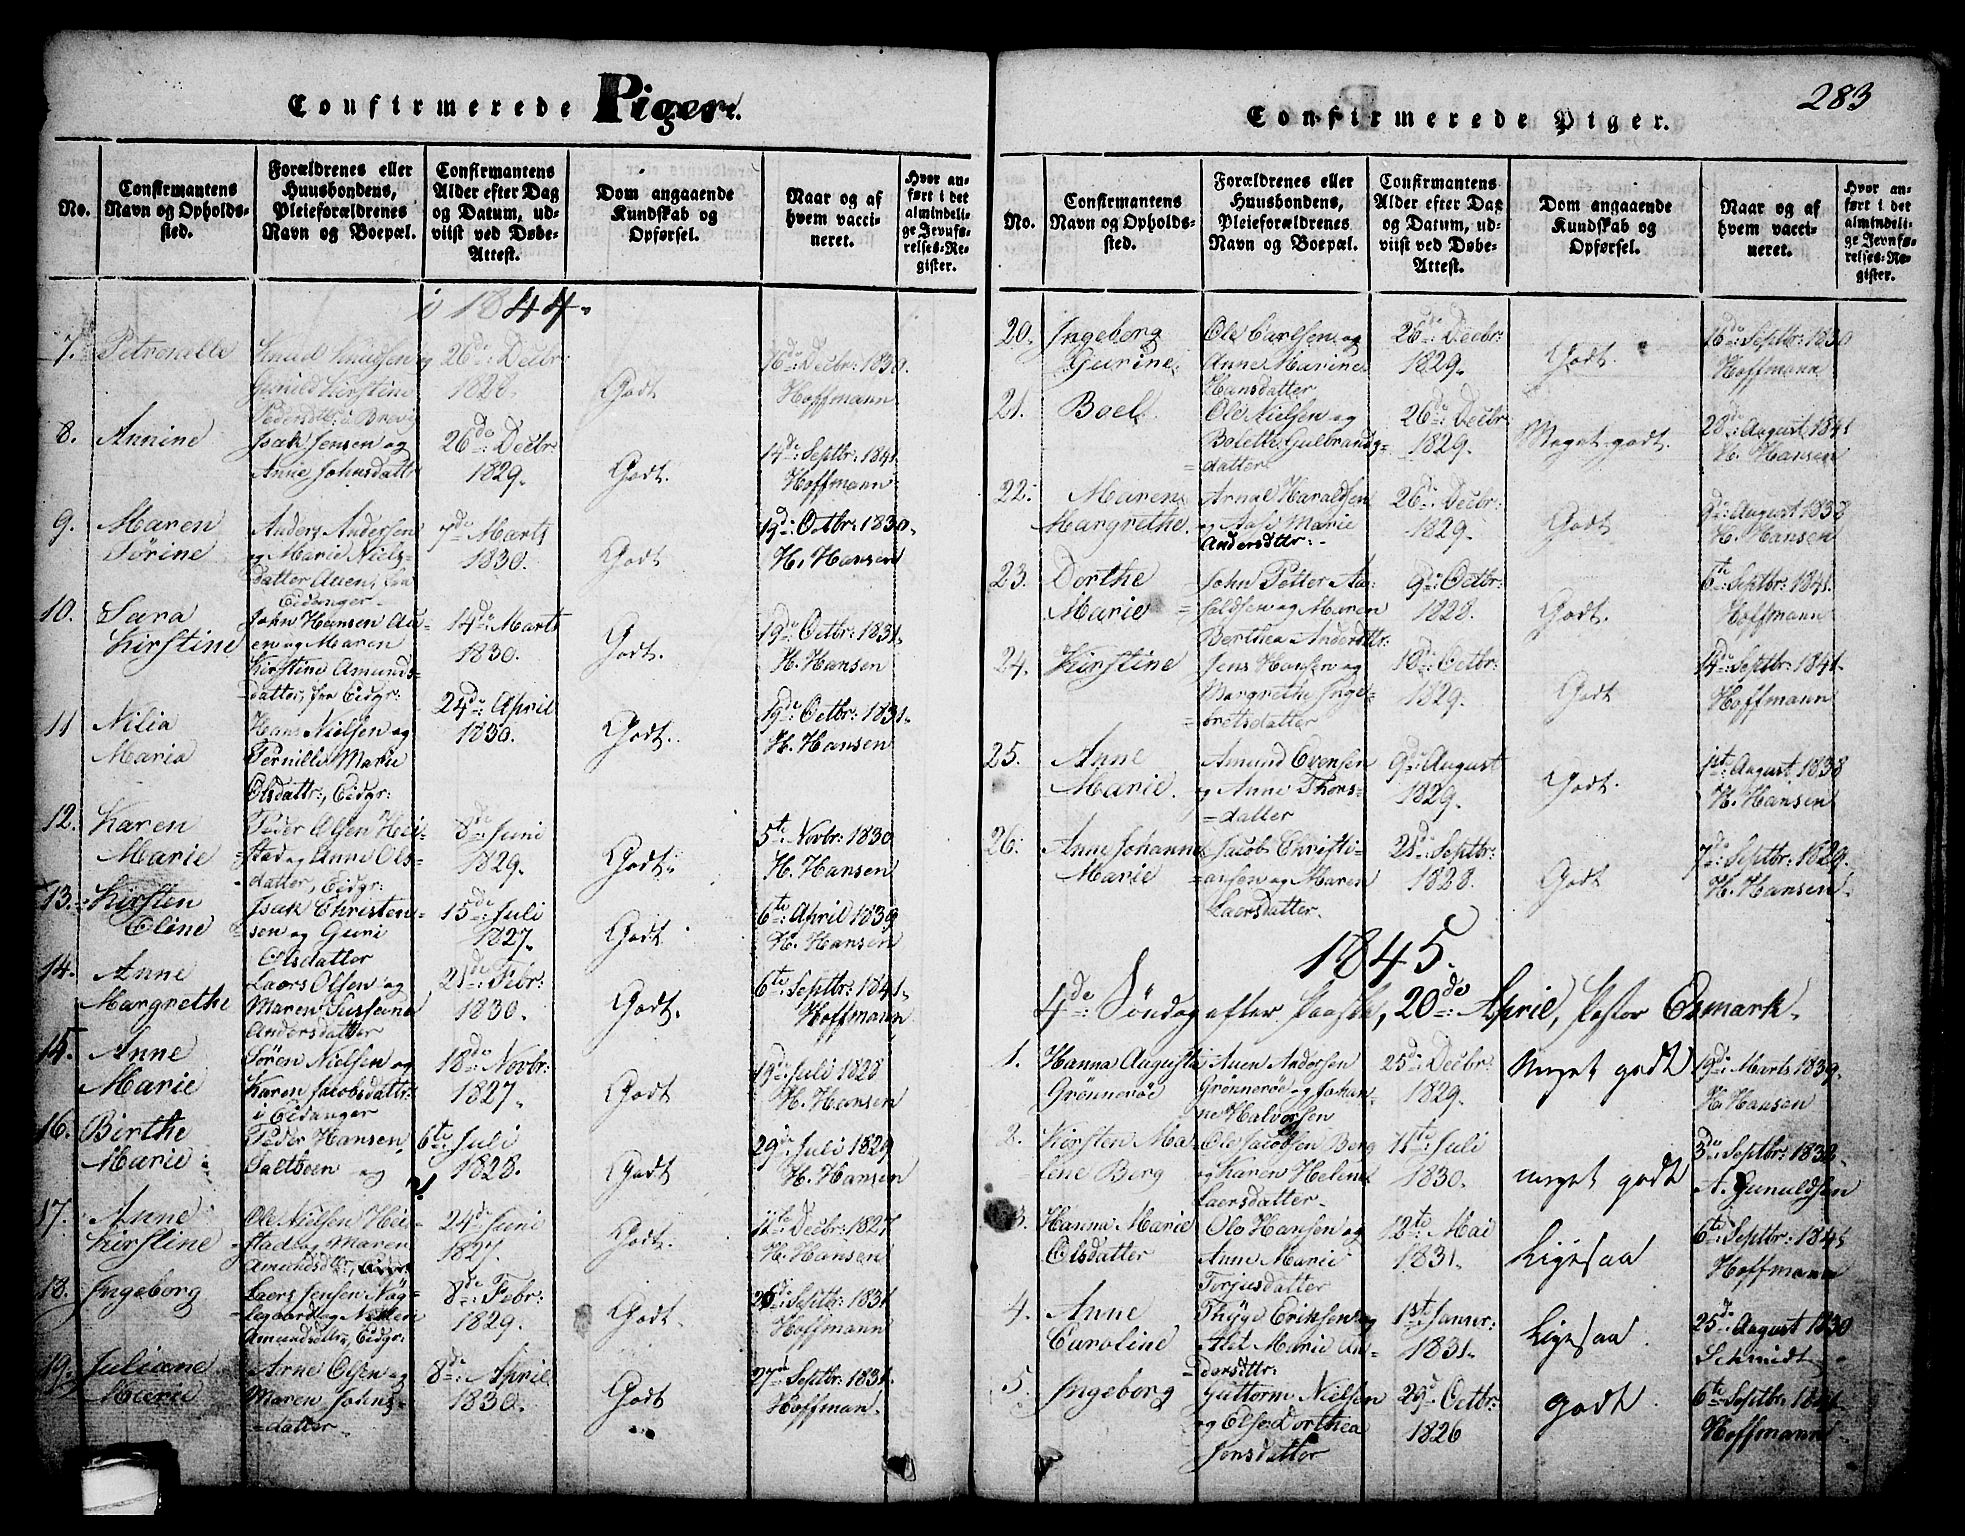 Confirmerede Piger.
No.
Confirmantens
Navn og Opholds-
sted.
Forældrenes eller
Huusbondens,
Pleieforældrenes
Navn og Boepæl.
Confirmantens
Alder efter Dag
og Datum, ud-
viist ved Døbe-
Attest.
Dom angaaende
Kundskab og
Opførsel.
Naar og af
hvem vacci-
neret.
Hvor an-
ført i det
almindeli-
ge Jevnfø-
relses-Re-
gister.
i 1844.
7. Petronelle
Knud Knudsen og
Gunild Kirstine
Pedersdtr: i Brevig
26de: Decbr:
1828.
Godt
16de: Decbr: 1830.
Hoffmann
8. Annine
Isak Jensen og
Anne Johnsdattr
26de: Decbr:
1829.
Godt.
14de: Septbr: 1841.
Hoffmann
9. Maren
Sørine
Anders Andersen
og Marie Niels-
datter Auen, fra
Eidanger
7de: Marts
1830.
Godt
19de: Octbr: 1830.
H. Hansen
10. Sara
Kirstine
John Hansen Au-
en og Maren
Kirstine Amunds-
datter, fra Eidgr:
14de: Marts
1830.
Godt.
19de: Octbr: 1831.
H. Hansen
11 Nilia
Maria
Hans Nielsen og
Pernille Marie
Olsdattr:, Eidgr:
24de: April
1830.
Godt.
19de: Octbr: 1831.
H. Hansen
12. Karen
Marie
Peder Olsen Hei-
stad og Anne Ols-
datter, Eidgr:
8de: Juni
1829.
Godt.
5te: Novbr: 1830
H. Hansen
13. Kirsten
Eline
Isak Christen-
sen og Guri
Olsdatter
15de: Juli
1827.
Godt
6te: April 1839
H. Hansen
14. Anne
Margrethe
Laers Olsen og
Maren Susanne
Andersdatter
21de: Febr:
1830.
Godt.
6te: Septbr: 1841.
Hoffmann
15. Anne
Marie
Søren Nielsen og
Karen Jacobsdattr:
i Eidanger
18de: Novbr:
1827.
Godt
19de: Juli 1828
H. Hansen
16. Birthe
Marie
Peder Hansen
og
6te: Juli
1828.
Godt
29de: Juli 1829
H. Hansen
17. Anne
Kirstine
Ole Nielsen Hei-
stad og Maren
Amundsdtr:, Eidgr:
24de: Juni
1827.
Godt.
11te: Decbr: 1827
H. Hansen
18. Ingeborg
Laers Jensen Nøg-
legaard og
Amundsdtr, Eidgr:
8de: Febr:
1829.
Godt.
26de: Septbr: 1831
Hoffmann
19. Juliane
Marie
Arne Olsen og
Maren Johns-
datter
8de: April
1830.
Godt
27de: Septbr: 1831.
Hoffman.
283
Confirmerede Piger.
No.
Confirmantens
Navn og Opholds-
sted.
Forældrenes eller
Huusbondens,
Pleieforældrenes
Navn og Boepæl.
Confirmantens
Alder efter Dag
og Datum, ud-
viist ved Døbe-
Attest.
Dom angaaende
Kundskab og
Opførsel.
Naar og af
hvem vacci-
neret.
Hvor an-
ført i det
almindeli-
ge Jevnfø-
relses-Re-
gister.
20. Ingeborg
Gurine
Ole Carlsen og
Anne Marine
Hansdatter
26de: Decbr:
1829.
Godt.
16de: Septbr: 1830
Hoffmann
21. Boel
Ole Nielsen og
Bolette Gulbrands-
datter
26de: Decbr
1829.
Meget godt.
28de: August 1841
H. Hansen
22. Maren
Margrethe
Arnol Haraldsen
og Aase Marie
Andersdttr:
26de: Decbr
1829.
Godt
9de: August 1838
H. Hansen
23. Dorthe
Marie
John Petter Aa-
saldsen og Maren
Berthea Andersdtr:
9de: Octbr:
1828.
Godt.
6te: Septbr: 1841.
Hoffmann
24. Kirstine
Jens Hansen og
Margrethe Inge-
bretsdatter
18de: Octbr:
1829.
Godt
14de: Septbr: 1841.
Hoffmann
25. Anne
Marie.
Amund Evensen
og Anne Thors-
datter
9de: August
1829.
Godt.
1ste: August 1838
H. Hansen
26. Anne Johanne
Marie
Jacob Christi-
ansen og Maren
Laersdatter.
21de: Septbr:
1828.
Godt
7de: Septbr: 1829.
H. Hansen
1845.
4de: Søndag efter Paaske, 20de: April, Pastor Esmark.
1. Hanna Augusta
Grønnerøe
Auen Andersen
Grønnerøe og Johan-
ne Halvorsen
25de: Decbr:
1829.
meget godt
19de: Marts 1839.
H. Hansen
2. Kirsten Ma-
lene Berg
Ole Jacobsen Berg
og Karen Helene
Laersdatter
11te: Juli
1830.
meget godt
3de: Septbr: 1832.
A. Gunuldsen
3. Hanne Marie
Olsdatter
Ole Hansen og
Anne Marie
Torjusdatter
12te: Mai
1831.
Ligesaa
6te: Septbr: 1841
Hoffmann
4. Anne
Caroline
Thyge Eriksen og
Alet Marie An-
dersdttr:
1ste: Januar:
1831.
Ligesaa.
25de: August 1830
Schmidt
5. Ingeborg
Guttorm Nielsen
og Else Dorthea
Jonsdatter
29de: Octbr:
1826
godt.
6te: Septbr: 1841
Hoffmann